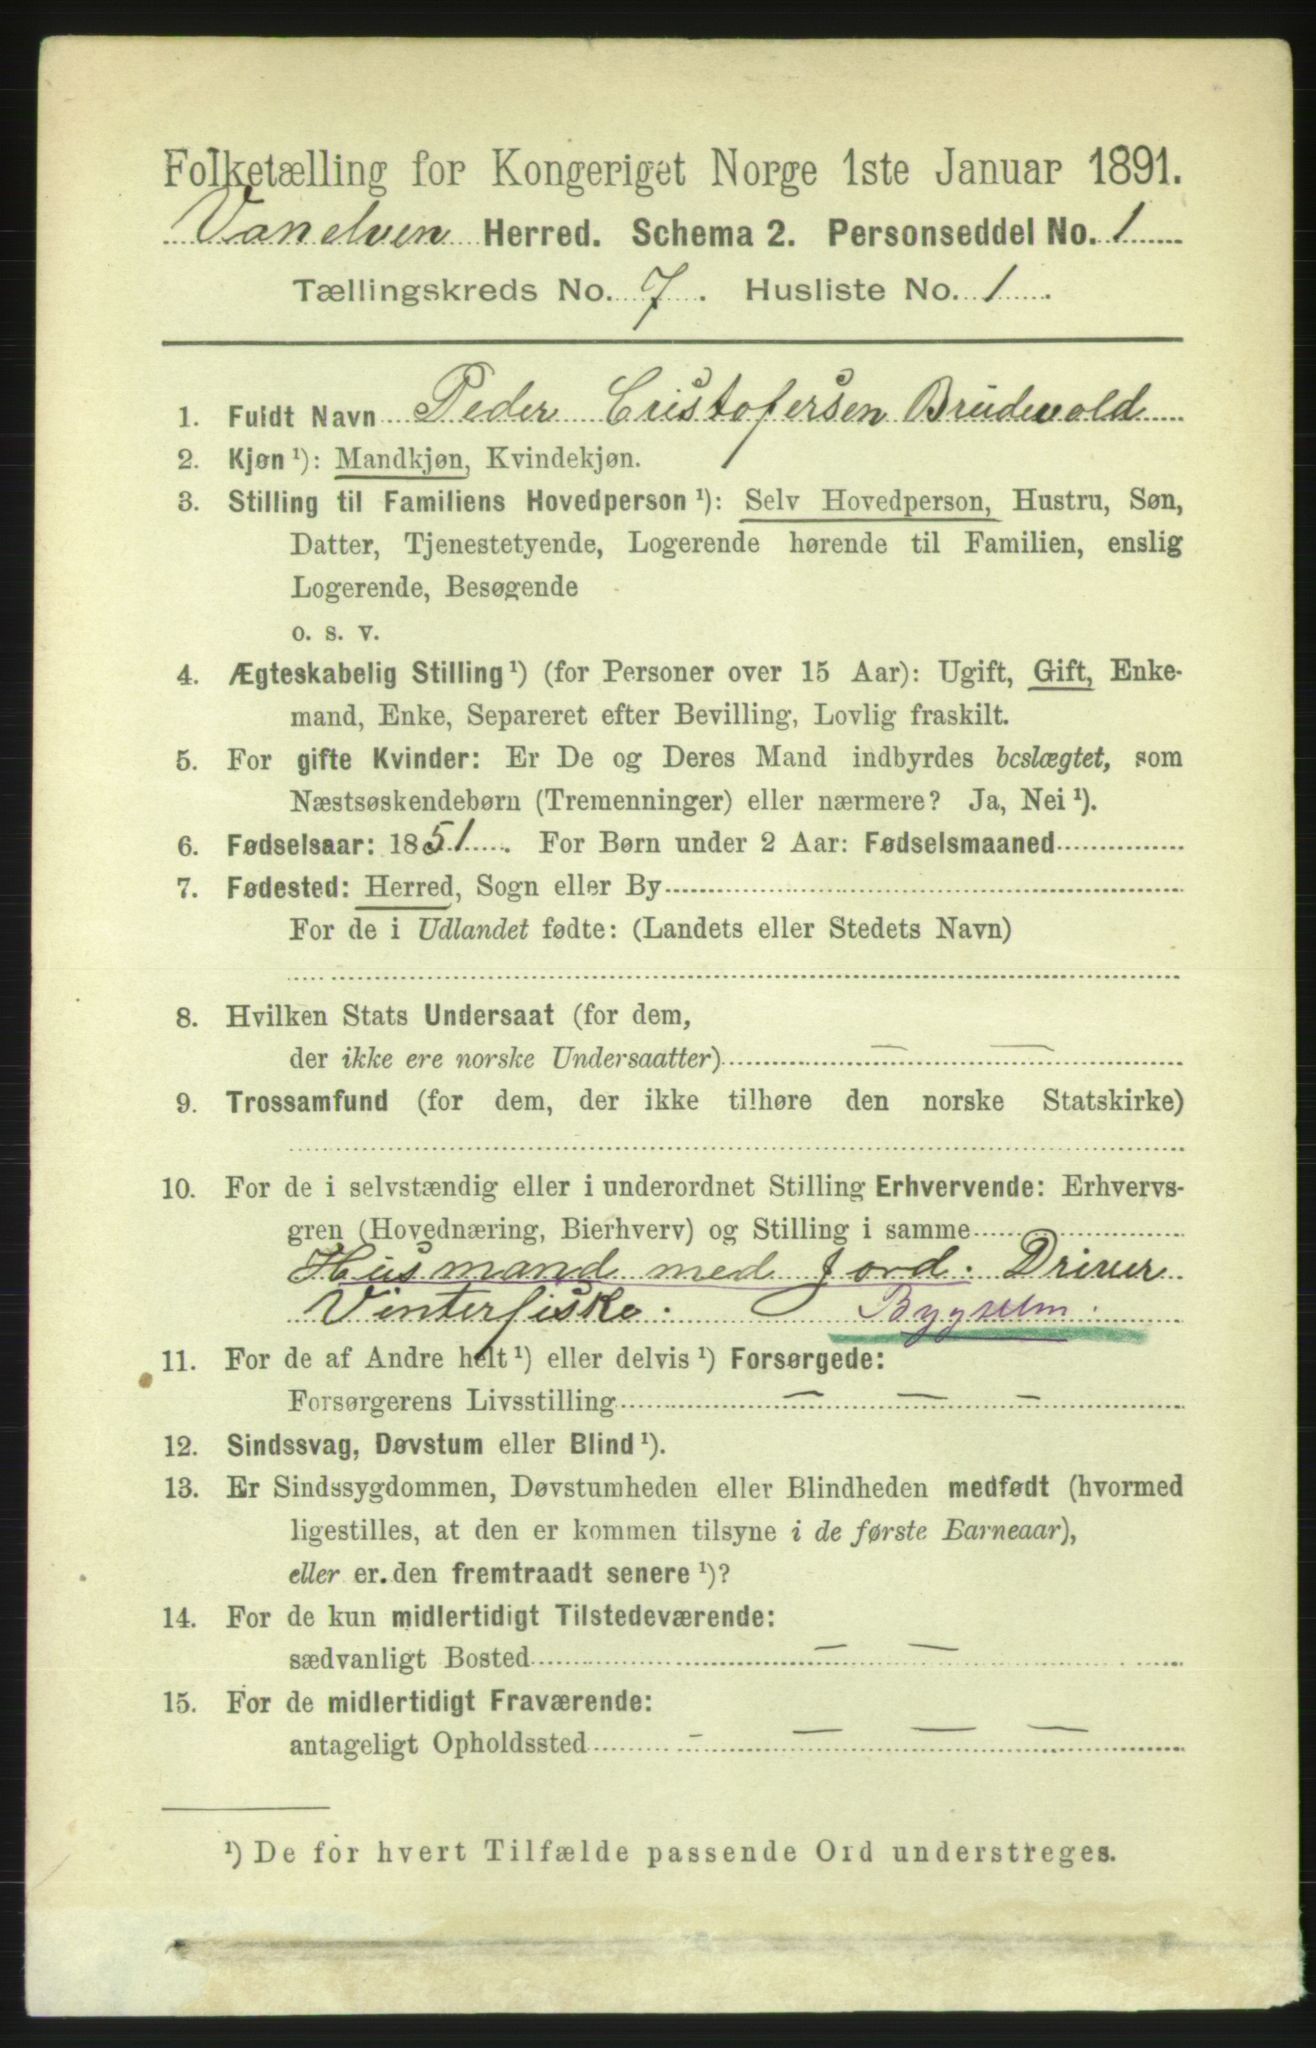 Folketælling for Kongeriget Norge 1ste Januar 1891.
Vanelven Herred. Schema 2. Personseddel No. 1
Tællingskreds No. 7. Husliste No. 1.
1. Fuldt Navn Peder Cristofersen Brudevold
2. Kjøn ¹): Mandkjøn, Kvindekjøn.
3. Stilling til Familiens Hovedperson ¹): Selv Hovedperson, Hustru, Søn,
Datter, Tjenestetyende, Logerende hørende til Familien, enslig
Logerende, Besøgende
o. s. v.
4. Ægteskabelig Stilling ¹) (for Personer over 15 Aar): Ugift, Gift, Enke-
mand, Enke, Separeret efter Bevilling, Lovlig fraskilt.
5. For gifte Kvinder: Er De og Deres Mand indbyrdes beslægtet, som
Næstsøskendebørn (Tremenninger) eller nærmere? Ja, Nei ¹).
6. Fødselsaar: 1851. For Børn under 2 Aar: Fødselsmaaned
7. Fødested: Herred, Sogn eller By
For de i Udlandet fødte: (Landets eller Stedets Navn)
8. Hvilken Stats Undersaat (for dem,
der ikke ere norske Undersaatter) — —
9. Trossamfund (for dem, der ikke tilhøre den norske Statskirke)
10. For de i selvstændig eller i underordnet Stilling Erhvervende: Erhvervs-
gren (Hovednæring, Bierhverv) og Stilling i samme
Husmand med Jord. Driver
Vinterfiske. Bygselm.
11. For de af Andre helt ¹) eller delvis ¹) Forsørgede:
Forsørgerens Livsstilling — — —
12. Sindssvag, Døvstum eller Blind ¹).
13. Er Sindssygdommen, Døvstumheden eller Blindheden medfødt (hvormed
ligestilles, at den er kommen tilsyne i de første Barneaar),
eller er den fremtraadt senere ¹)?
14. For de kun midlertidigt Tilstedeværende:
sædvanligt Bosted — —
15. For de midlertidigt Fraværende:
antageligt Opholdssted - — — —
¹) De for hvert Tilfælde passende Ord understreges.